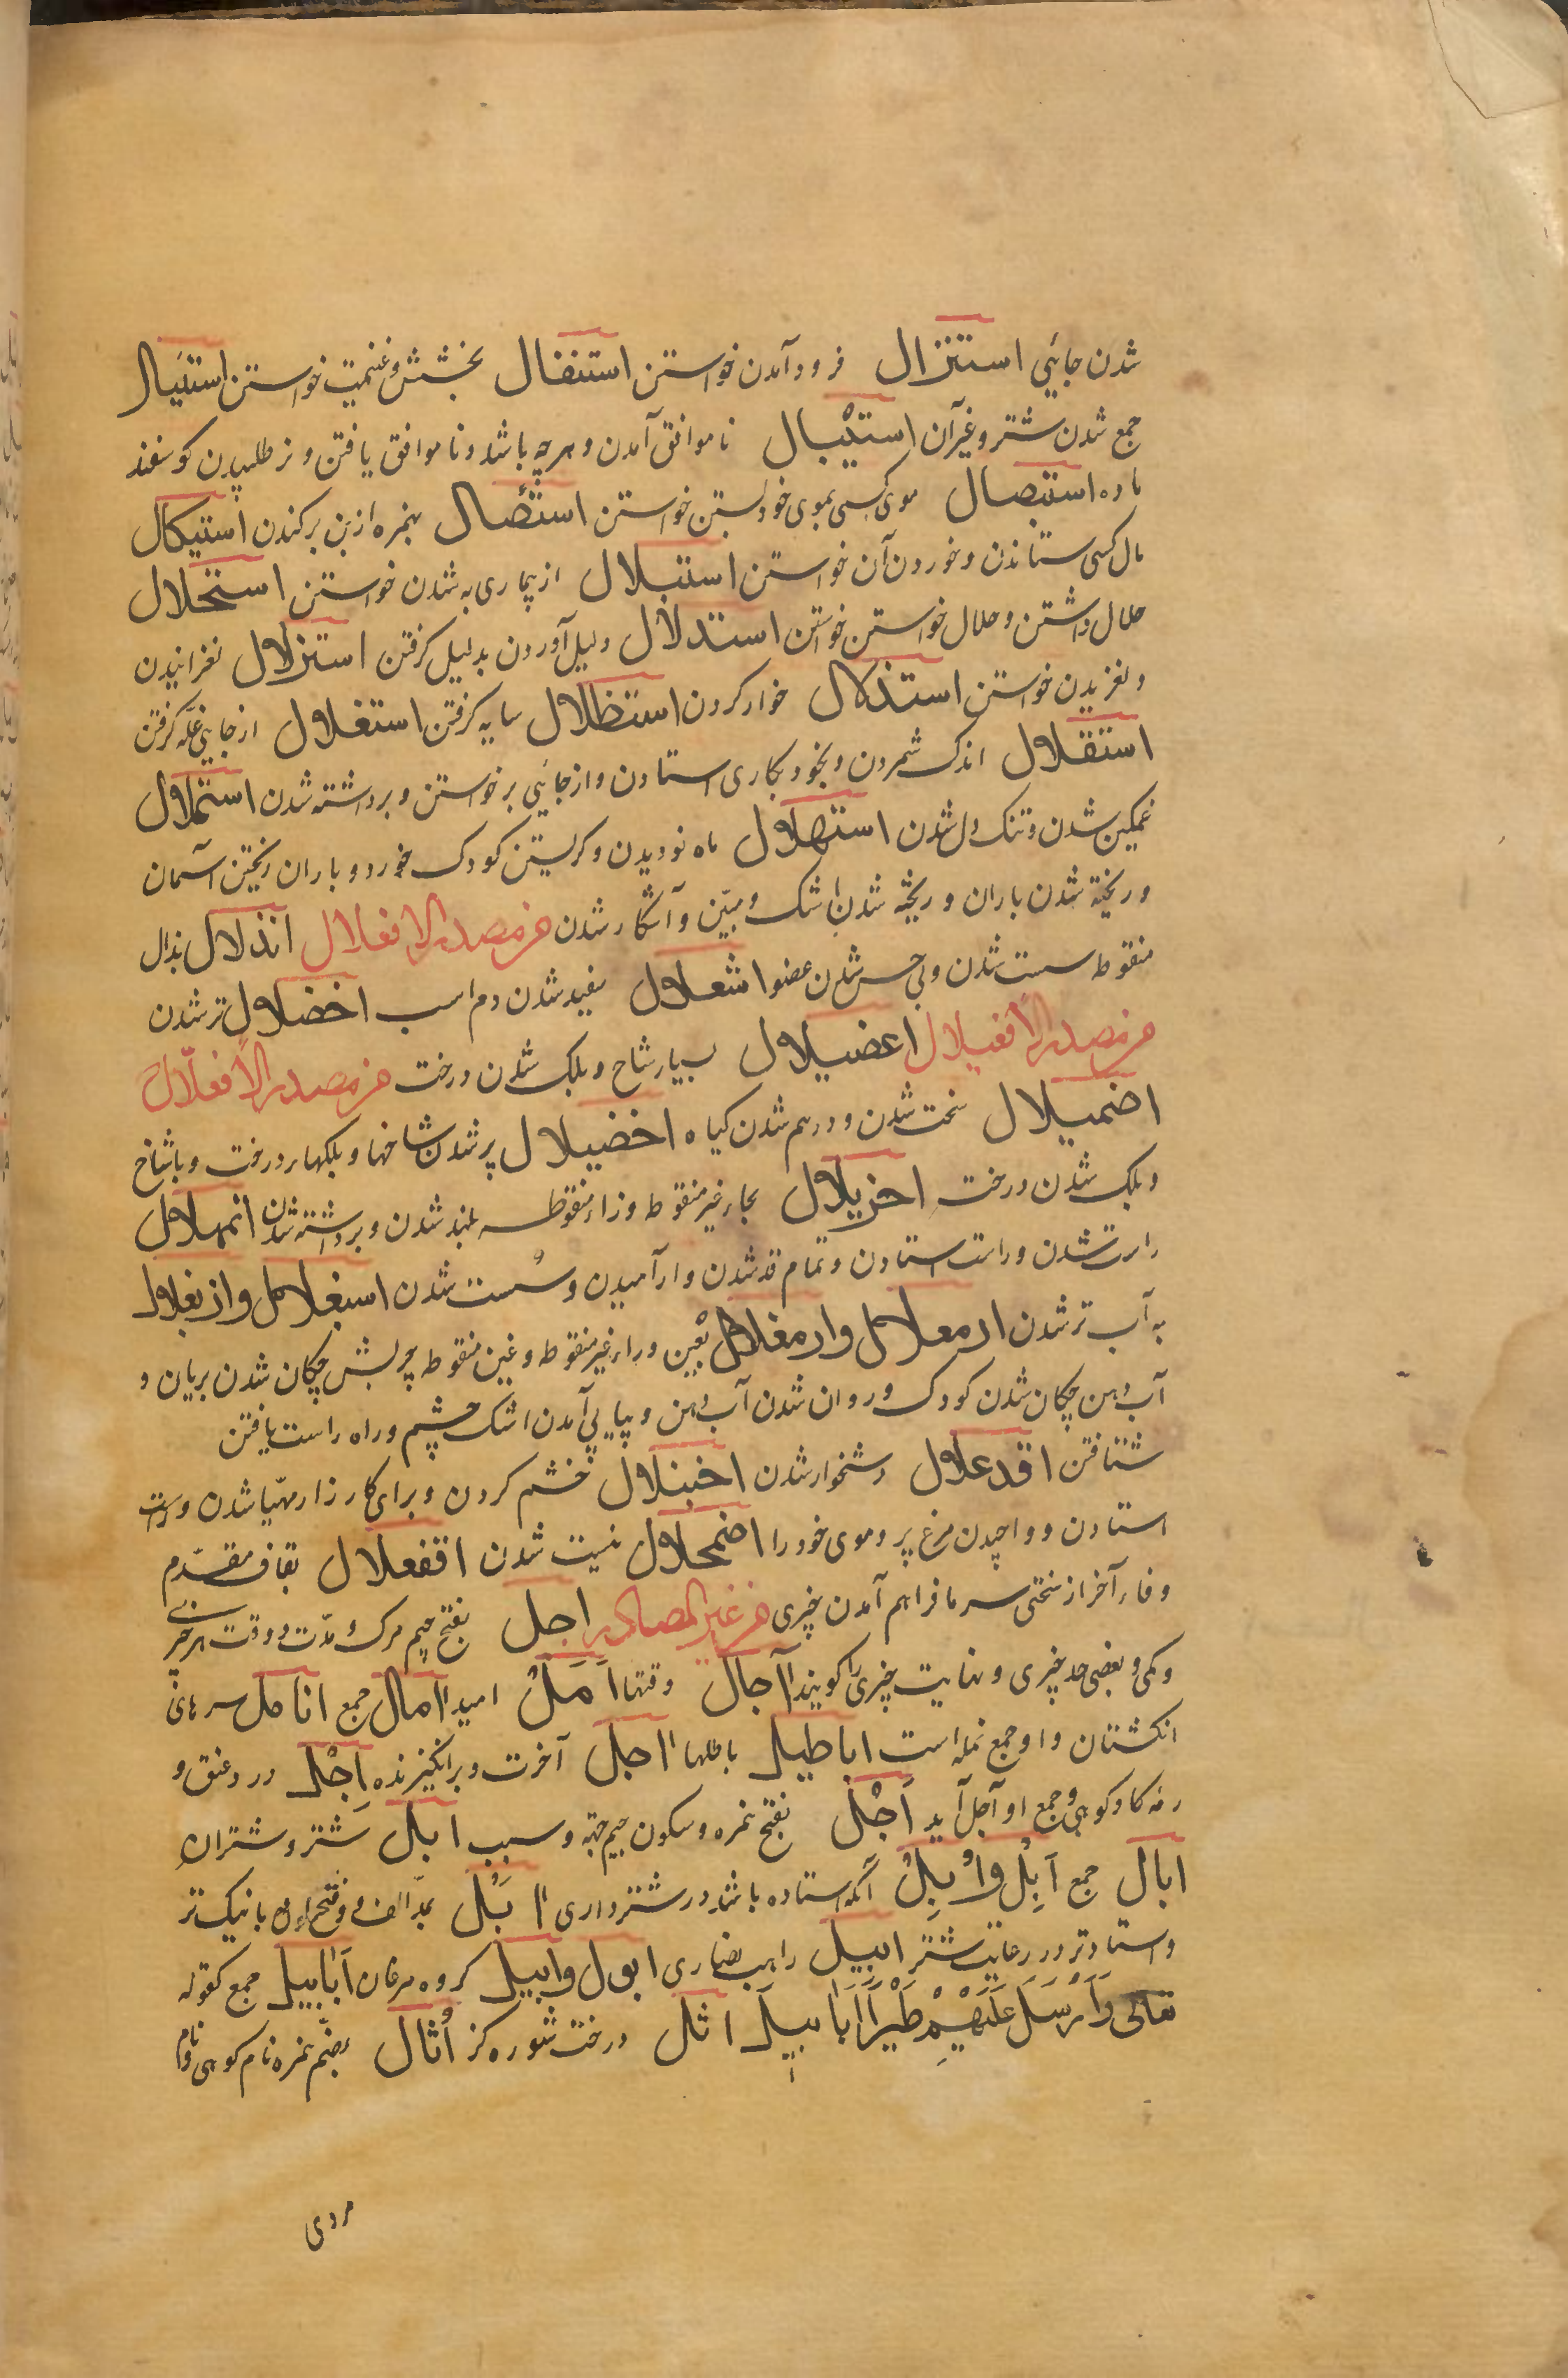 شدن جائی استنزال فرود آمدن خواستن استنفال بخشش و غنیمت خواستن استئبال
جمع شدن شتر و غیر آن استیبال ناموافق آمدن و هرچه باشد و ناموافق یافتن و نر طلبیدن کوسفند
ماده استیصال موی کسی بموی خود بستن خواستن استئصال بهمزه از بن برکندن استیکال
مال کسی ستاندن و خوردن آن خواستن استبلال از بیماری به شدن خواستن استحلال
حلال داشتن و حلال خواستن خواستن استدلال دلیل آوردن بدلیل کرفتن استزلال لغزانیدن
و لغزیدن خواستن استذلال خوار کردن استظلال سایه کرفتن استغلال از جایی غله کرفتن
استقلال اندک شمردن و بخود بکاری استادن و از جائی برخواستن و برداشته شدن استملال
غمکین شدن و تنک دل شدن استهلال ماه نو دیدن و کریستن کودک خورد و باران ریختن آسمان
و ریخته شدن باران و ریخته شدن اشک و مبیّن و آشکار شدن من مصدر الافعلال انذلال بذال
منقوطه سست شدن و بی حس شدن عضو اشعلال سفید شدن دم اسب اخضلال تر شدن
من مصدر الافعیلال اعضیلال بسیار شاخ و بلک شدن درخت من مصدر الافعلّال
اضمیلال سخت شدن و درهم شدن کیاه اخضیلال پر شدن شاخها و بلکهاء درخت و باشاخ
و بلک شدن درخت احزیلال بحاء غیر منقوطه و زاء منقوطه بلند شدن و برداشته شدن اتمهلال
راست شدن و راست استادن و تمام قد شدن و آرامیدن و سُست شدن اسبغلال و ازبغلال
به آب تر شدن ارمعلال و ارمغلال بعین و راء غیر منقوطه و غین منقوطه چربش چکان شدن بریان و
آب دهن چکان شدن کودک و روان شدن آب دهن و پیاپی آمدن اشک چشم و راه راست یافتن
شتافتن اقدعلال دشخوار شدن اخبئلال خشم کردن و برای کارزار مهیّا شدن و راست
استادن و واچیدن مرغ پر و موی خود را اضمحلال نیست شدن اقفعلال بقاف مقدّم
و فاء آخر از سختی سرما فراهم آمدن چیزی من غیر المصادر اجل بفتح جیم مرک و مدّت و وقت هر چیزی
و کمی و بعضی حد چیزی و نهایت چیزی را کویند آجال وقتها اَمَلُ امید آمال جمع انامل سرهای
انکشتان و او جمع نمله است اباطیل باطلها آجل آخرت و برانکیزنده اِجْل درد عنق و
رمه کاو کوهی و جمع او آجال آید اَجْل بفتح همزه و سکون جیم جهة و سبب ابل شتر و شتران
ابال جمع اَبِل و اُبِلُ آنکه استاده باشد در شترداری آبَل بمدّ الف و فتح اول با نیک‌تر
و استادتر در رعایت شتر ابیل راهب نصاری ابول و ابیل کروه مرغان اَبابیل جمع کقوله
تعالی وَاَرْسَلَ عَلَیْهِمْ طَیْراً اَبَابیلَ اثل درخت شوره کز اُثال بضمّ همزه نام کوهی و نام
مردی